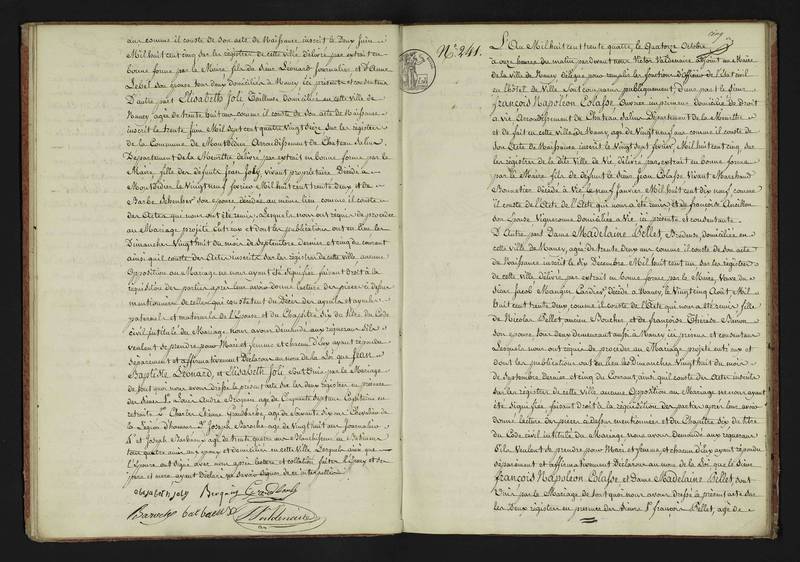 ans comme il conste de son acte de Naissance inscrit le Deux Juin
Mil huit cent cinq sur les registres de cette ville délivré par extrait en
bonne forme par le Maire, fils de Sieur Léonard Journalier, et d'Anne
Lebel son épouse tous deux domiciliés à Nancy ici présents et consentans
D'autre part Elisabeth Joli, Tailleuse Domiciliée en cette Ville de
Nancy, agée de trente huit ans comme il conste de son acte de Naissance
inscrit le trente Juin Mil Sept cent quatre Vingt seize sur les registres
de la Commune de Montdidier Arrondissement de Chateau Salins
Département de la Meurthe délivré par extrait en bonne forme par le
Maire, fille des défunts Jean Joly, vivant propriétaire Décédé à
Montdidier le Vingt neuf février Mil huit cent trente deux et de
Barbe son épouse décédée au même lieu, comme il conste
des Actes qui nous ont été remis. Lesquels nous ont requis de procéder
au Mariage projeté entr'eux et dont les publications ont eu lieu les
Dimanches Vingt huit du mois de Septembre dernier et cinq du courant
ainsi qu'il conste des Actes inscrits sur les registres de cette ville aucune
Opposition au Mariage ne nous ayant été signifiée, faisant Droit à la
réquisition des parties après leur avoir donné lecture des pièces ci dessus
mentionnées de celles qui constatent du Décès des ayeuls et ayeules
paternels et maternels de l'Epouse et du Chapitre Six du titre du Code
civil intitulé du Mariage, nous avons demandé aux requérans s'ils
veulent se prendre pour Mari et femme et chacun d'eux ayant répondu
séparément et affirmativement Déclarons au nom de la Loi que Jean
Baptiste Léonard, et Elisabeth Joli, sont Unis par le Mariage
de tout quoi nous avons dressé le présent acte sur les deux registres en présence
des Sieurs 1° Louis André Brognin agé de Cinquante Sept ans Capitaine en
retraite 2° Charles Etienne agé de Soixante dix ans Chevalier de
la Légion d'honneur 3° Joseph Baroche agé de Vingt huit ans Journalier
4° et Joseph Barbeaux agé de trente quatre ans Blanchisseur en Batiment
tous quatre amis aux époux et demeurant en cette Ville Lesquels ainsi que
l'Epouse ont signé avec nous après lecture et collation faites, l'Epoux et ses
père et mère ayant Déclaré ne savoir signer de ce interpellés
elisabeth joly
Baroche barbaeux
N°. 241.
cinq
L'An Mil huit cent trente quatre, le Quatorze Octobre
à onze heures du matin pardevant nous Victor Valdenaire adjoint au Maire
de la ville de Nancy délégué pour remplir les fonctions d'officier de l'Etat civil
en l'hôtel de Ville sont comparus publiquement; d'une part le Sieur
François Napoléon Colasse, Ouvrier en premier domicilié de droit
à Vic Arrondissement de Chateau Salins Département de la Meurthe
et de fait en cette Ville de Nancy, agé de Vingt neuf ans comme il conste de
son Acte de Naissance inscrit le Vingt Sept février, Mil huit cent cinq, sur
les registres de la dite Ville de Vic, délivré par extrait en bonne forme
par le Maire fils de défunt le Sieur Jean Colasse Vivant Marchand
Bonnetier décédé à Vic le neuf Janvier Mil huit cent dix neuf comme
il conste de l'Acte de l'Acte qui nous a été remis, et de françoise Ancillon
son épouse Vigneronne domiciliée à Vic ici présente et consentante
D'Autre part Dame Madelaine Pellet, Brodeuse, domiciliée en
cette ville de Nancy, agée de trente deux ans comme il conste de son acte
de Naissance inscrit le dix Décembre Mil huit cent un sur les registres
de cette ville, délivré par extrait en bonne forme par le Maire, Veuve du
Sieur Jacob Mangin Cordier, décédé à Nancy, le Vingt cinq Août, Mil
huit cent trente deux comme il conste de l'Acte qui nous a été remis, fille
de Nicolas Pellet ancien Boucher et de françoise Thérèse Baron
son épouse, tous deux demeurant aussi à Nancy ici présens et consentans
Lesquels nous ont requis de procéder au Mariage projeté entr'eux et
dont les publications ont eu lieu les Dimanches Vingt huit du mois
de Septembre dernier, et cinq du Courant, ainsi qu'il conste des Actes inscrits
sur les registres de cette ville, aucune Opposition au Mariage ne nous ayant
été signifiée, faisant Droit à la réquisition des parties après leur avoir
donné lecture des pièces ci dessus mentionnées et du Chapitre Six du titre
du Code civil intitulé du Mariage, nous avons demandé aux requérans
s'ils Veulent se prendre pour Mari et femme, et chacun d'eux ayant répondu
séparément et affirmativement Déclarons au nom de la Loi que le Sieur
François Napoléon Colasse, et Dame Madelaine Pellet, sont
Unis par le Mariage de tout quoi nous avons dressé le présent acte sur
les Deux registres en présence des Sieurs 1° françois Pellet, agé de